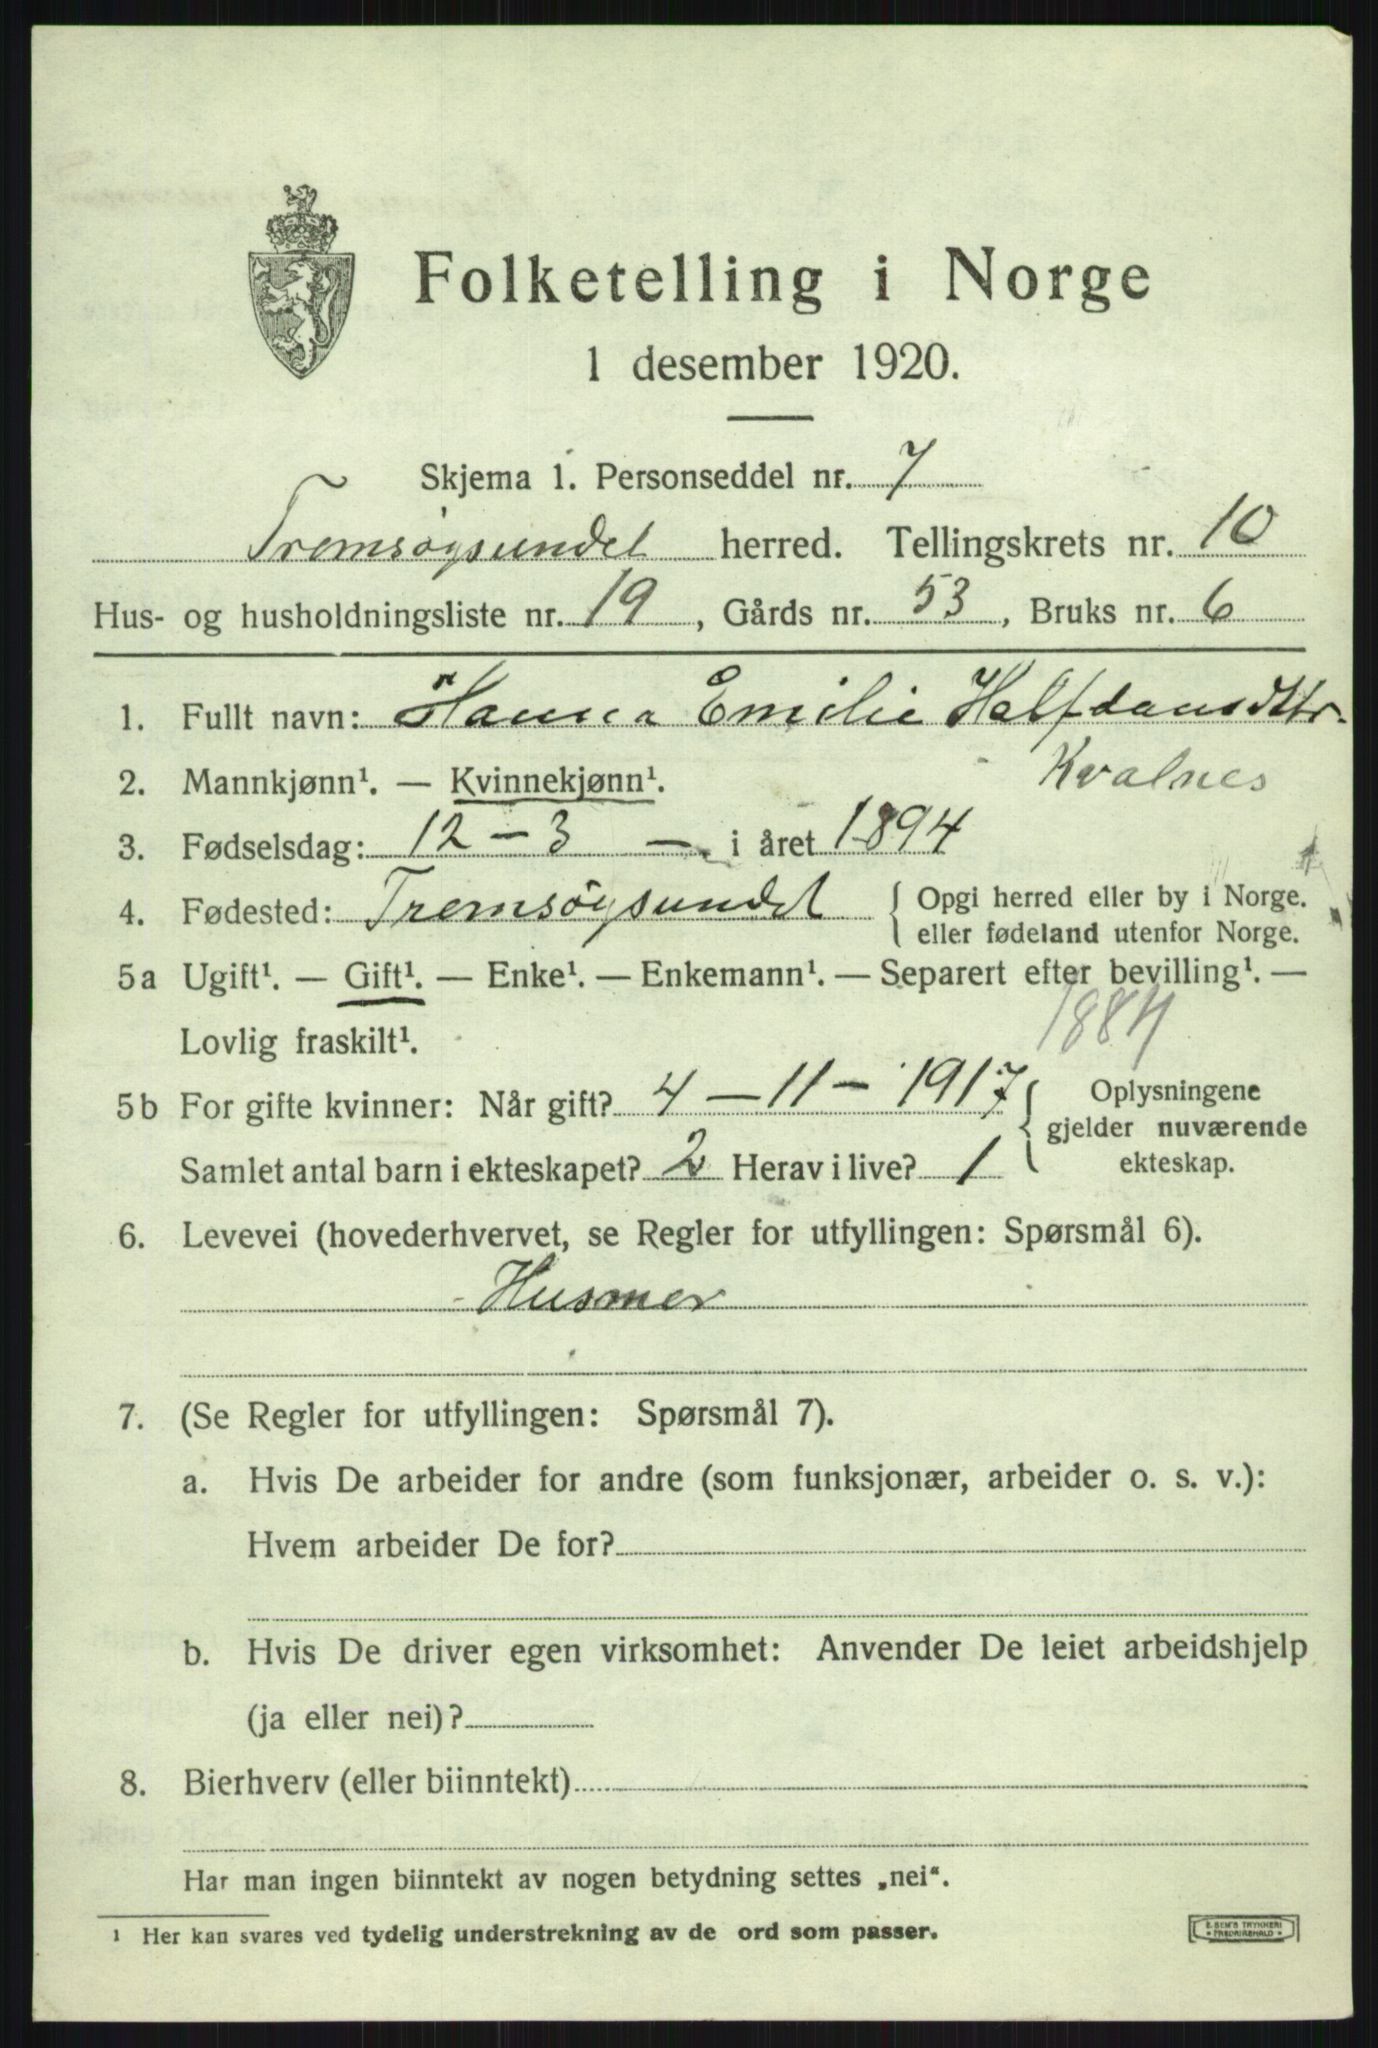 Folketelling i Norge
1 desember 1920.
Skjema 1. Personseddel nr. 7
Tromsøysundet herred. Tellingskrets nr. 10
Hus- og husholdningsliste nr. 19, Gårds nr. 53, Bruks nr. 6
1. Fullt navn: Hanna Emilie Halfdansdttr.
2. Mannkjønn¹. — Kvinnekjønn¹. Kvalnes
3. Fødselsdag: 12 – 3 — i året 1894
4. Fødested: Tromsøysundet { Opgi herred eller by i Norge.
eller fødeland utenfor Norge.
5a Ugift¹. — Gift¹. — Enke¹. — Enkemann¹. — Separert efter bevilling¹. —
Lovlig fraskilt¹. 1884
5b For gifte kvinner: Når gift? 4 – 11 – 1917 { Oplysningene
gjelder nuværende
Samlet antal barn i ekteskapet? 2 Herav i live? 1 ekteskap.
6. Levevei (hovederhvervet, se Regler for utfyllingen: Spørsmål 6).
Husmor
7. (Se Regler for utfyllingen: Spørsmål 7).
a. Hvis De arbeider for andre (som funksjonær, arbeider o. s. v.):
Hvem arbeider De for?
b. Hvis De driver egen virksomhet: Anvender De leiet arbeidshjelp
(ja eller nei)?
8. Bierhverv (eller biinntekt)
Har man ingen biinntekt av nogen betydning settes „nei“.
¹ Her kan svares ved tydelig understrekning av de ord som passer.
E. SEM'S TRYKKERI
FREDRIKSHALD